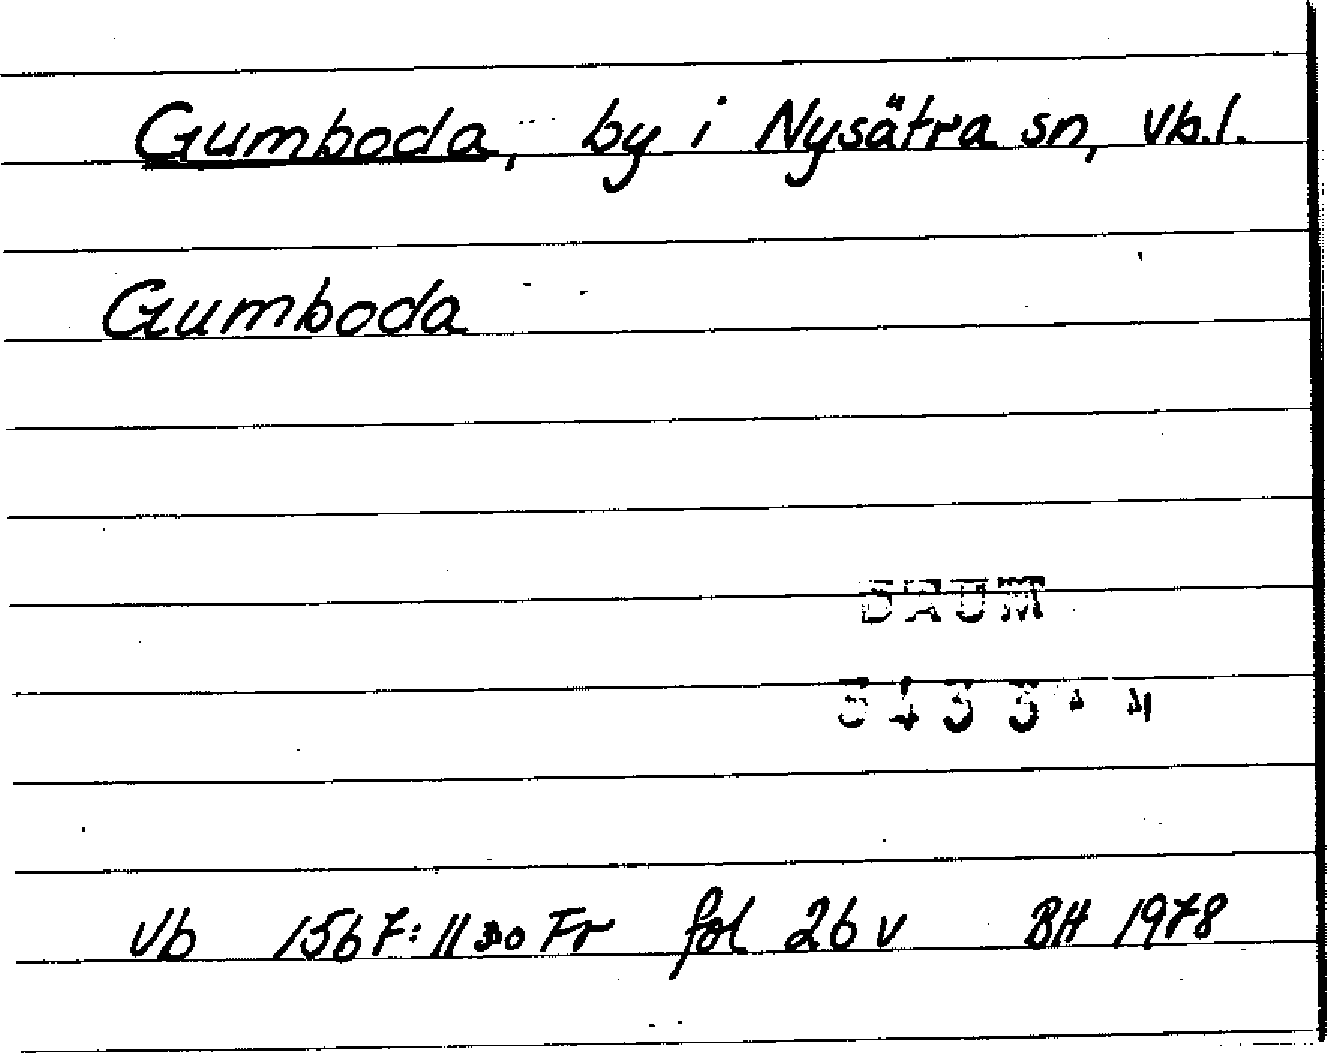 Gumboda, by i Nysätra sn, Vb.l.
Gumboda
DAUM
Vb 1567: 11 Fr fol 26 v BH 1978